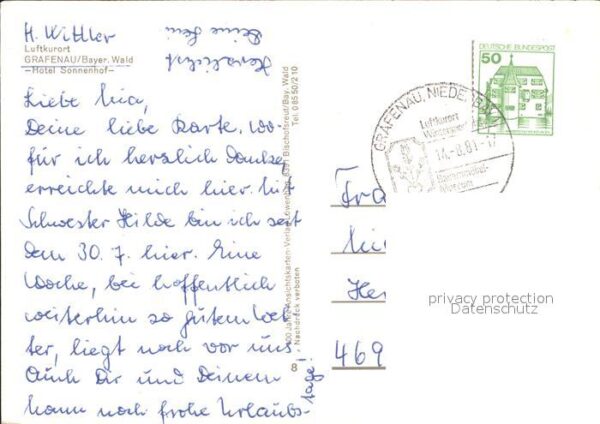 H. Wittler
Luftkurort
GRAFENAU/Bayer. Wald
-Hotel Sonnenhof-
Liebe Mia,
Deine liebe Karte, wo-
für ich herzlich Danke
erreichte mich hier. Mit
Schwester Hilde bin ich seit
dem 30.7. hier. Eine
Woche, bei hoffentlich
weiterhin so gutem Wet-
ter, liegt noch vor uns.
Auch Dir und Deinem
Mann noch frohe Urlaubs-
tage!
Herzlichst
Deine
100 Jahre Ansichtskarten-Verlag
8391 Bischofsreut/Bay. Wald
Tel. 08550/210
Nachdruck verboten
8
DEUTSCHE BUNDESPOST
50
GRAFENAU, NIEDERBAY
Luftkurort
14.-8.81.-17
Museum
Fra
He
469
privacy protection
Datenschutz